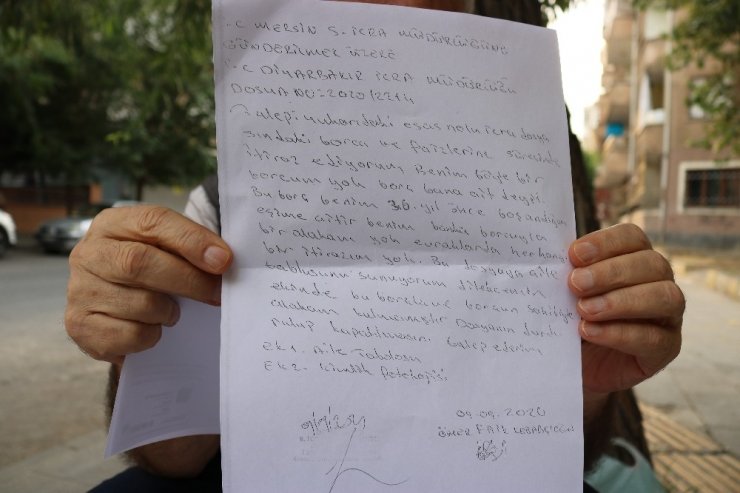 T.C MERSİN 5. İCRA MÜDÜRLÜĞÜNE
GÖNDERİLMEK ÜZERE
T.C DİYARBAKIR İCRA MÜDÜRLÜĞÜ
DOSYA NO: 2020/2214
Talepi yukarıdaki esas nolu icra dosya
sındaki borca ve faizlerine süresinde
itiraz ediyorum Benim böyle bir
borcum yok borç bana ait değil.
Bu borç benim 30 yıl önce boşandığım
eşime aittir benim banka borcuyla
bir alakam yok evraklarda herhangi
bir itirazım yok. Bu dosyaya aile
tablosunu sunuyorum dilekcemin
ekinde bu borcla ve borcun sahibiyle
alakam kalmamıştır Dosyanın durdu
rulup kapatılmasını talep ederim
EK1. Aile Tablosu
EK2- Kimlik fotokopisi
09.09.2020
ÖMER FAİK